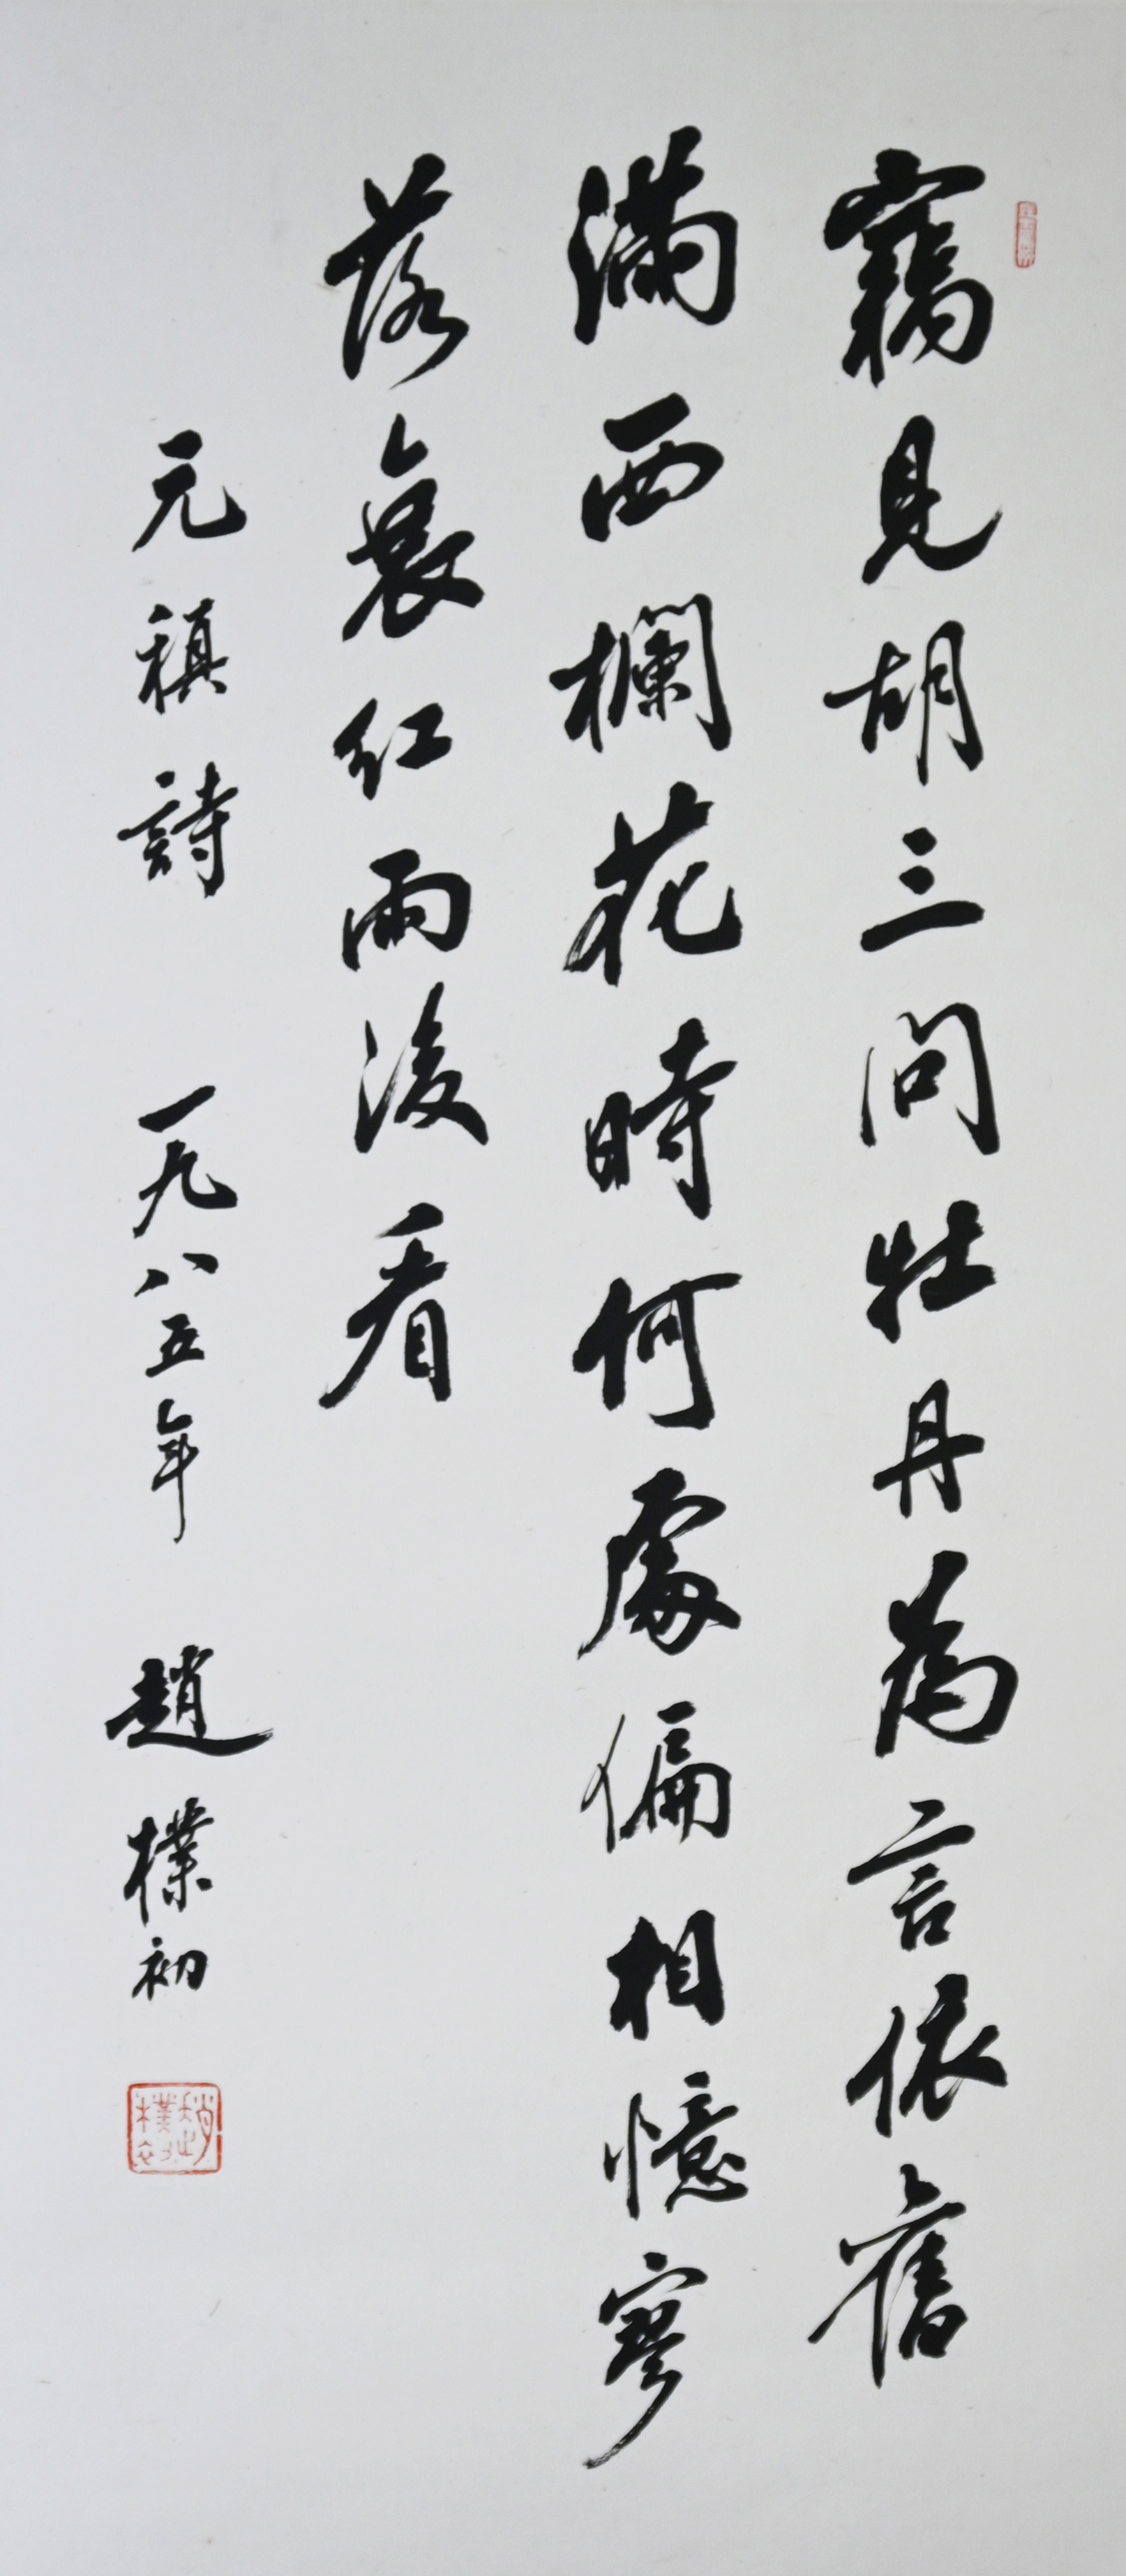 竊見胡三問牡丹為言依舊
滿西欄花時何處偏相憶寥
落衰紅雨後看
元稹詩 一九八五年 趙樸初
趙樸初